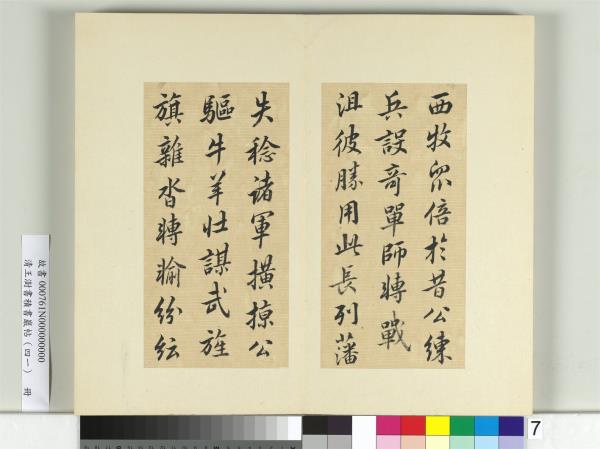 西牧眾倍於昔公練
兵設奇單師轉戰
沮彼勝用此長列藩
失稔諸軍橫掠公
驅牛羊壯謀武旌
旗雜沓轉輸紛紜
故書 000761N000000000
清王澍書積書巖帖(四一) 冊
7